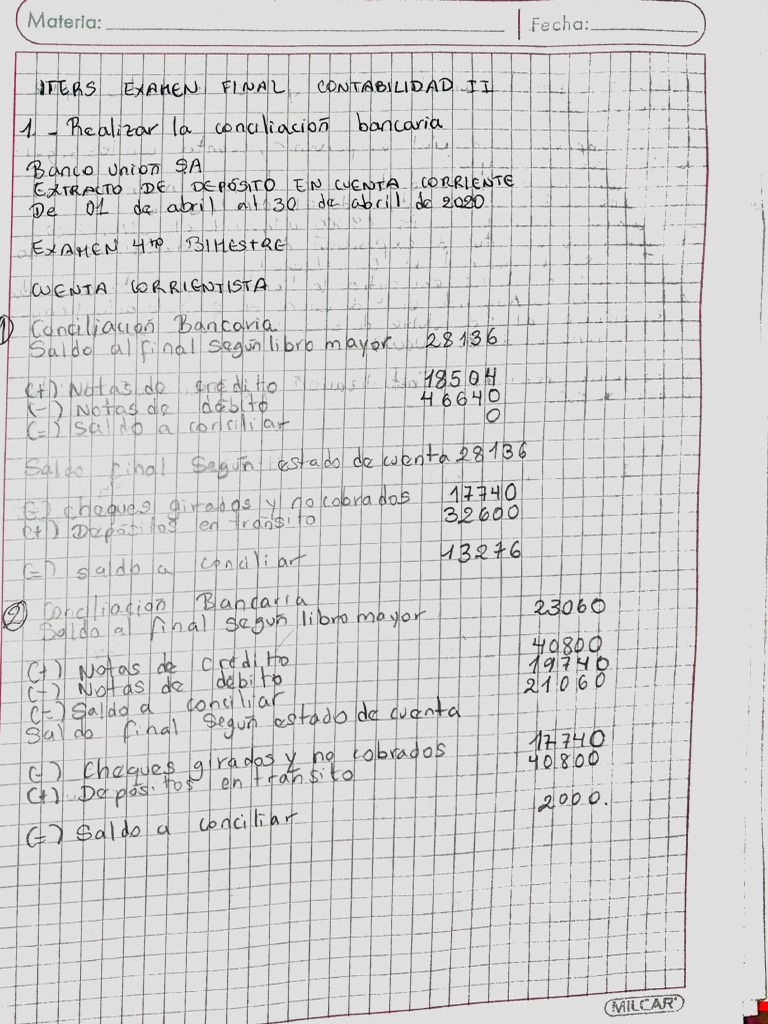 Materia: Fecha:
ITERS EXAMEN FINAL CONTABILIDAD II
1 - Realizar la conciliación bancaria
Banco Union SA
EXTRACTO DE DEPÓSITO EN CUENTA CORRIENTE
De 01 de abril al 30 de abril de 2020
EXAMEN 4to BIMESTRE
CUENTA CORRENTISTA
1) Conciliación Bancaria
Saldo al final según libro mayor 28136
(+) Notas de crédito 18504
(-) Notas de débito 46640
(=) Saldo a conciliar 0
Saldo final según estado de cuenta 28136
(-) cheques girados y no cobrados 17740
(+) Depósitos en tránsito 32600
(=) saldo a conciliar 13276
2) Conciliación Bancaria
Saldo al final según libro mayor 23060
(+) Notas de crédito 40800
(-) Notas de débito 19740
(=) Saldo a conciliar 21060
Saldo final según estado de cuenta
(-) Cheques girados y no cobrados 17740
(+) Depósitos en tránsito 40800
(=) Saldo a conciliar 2000.
MILCAR